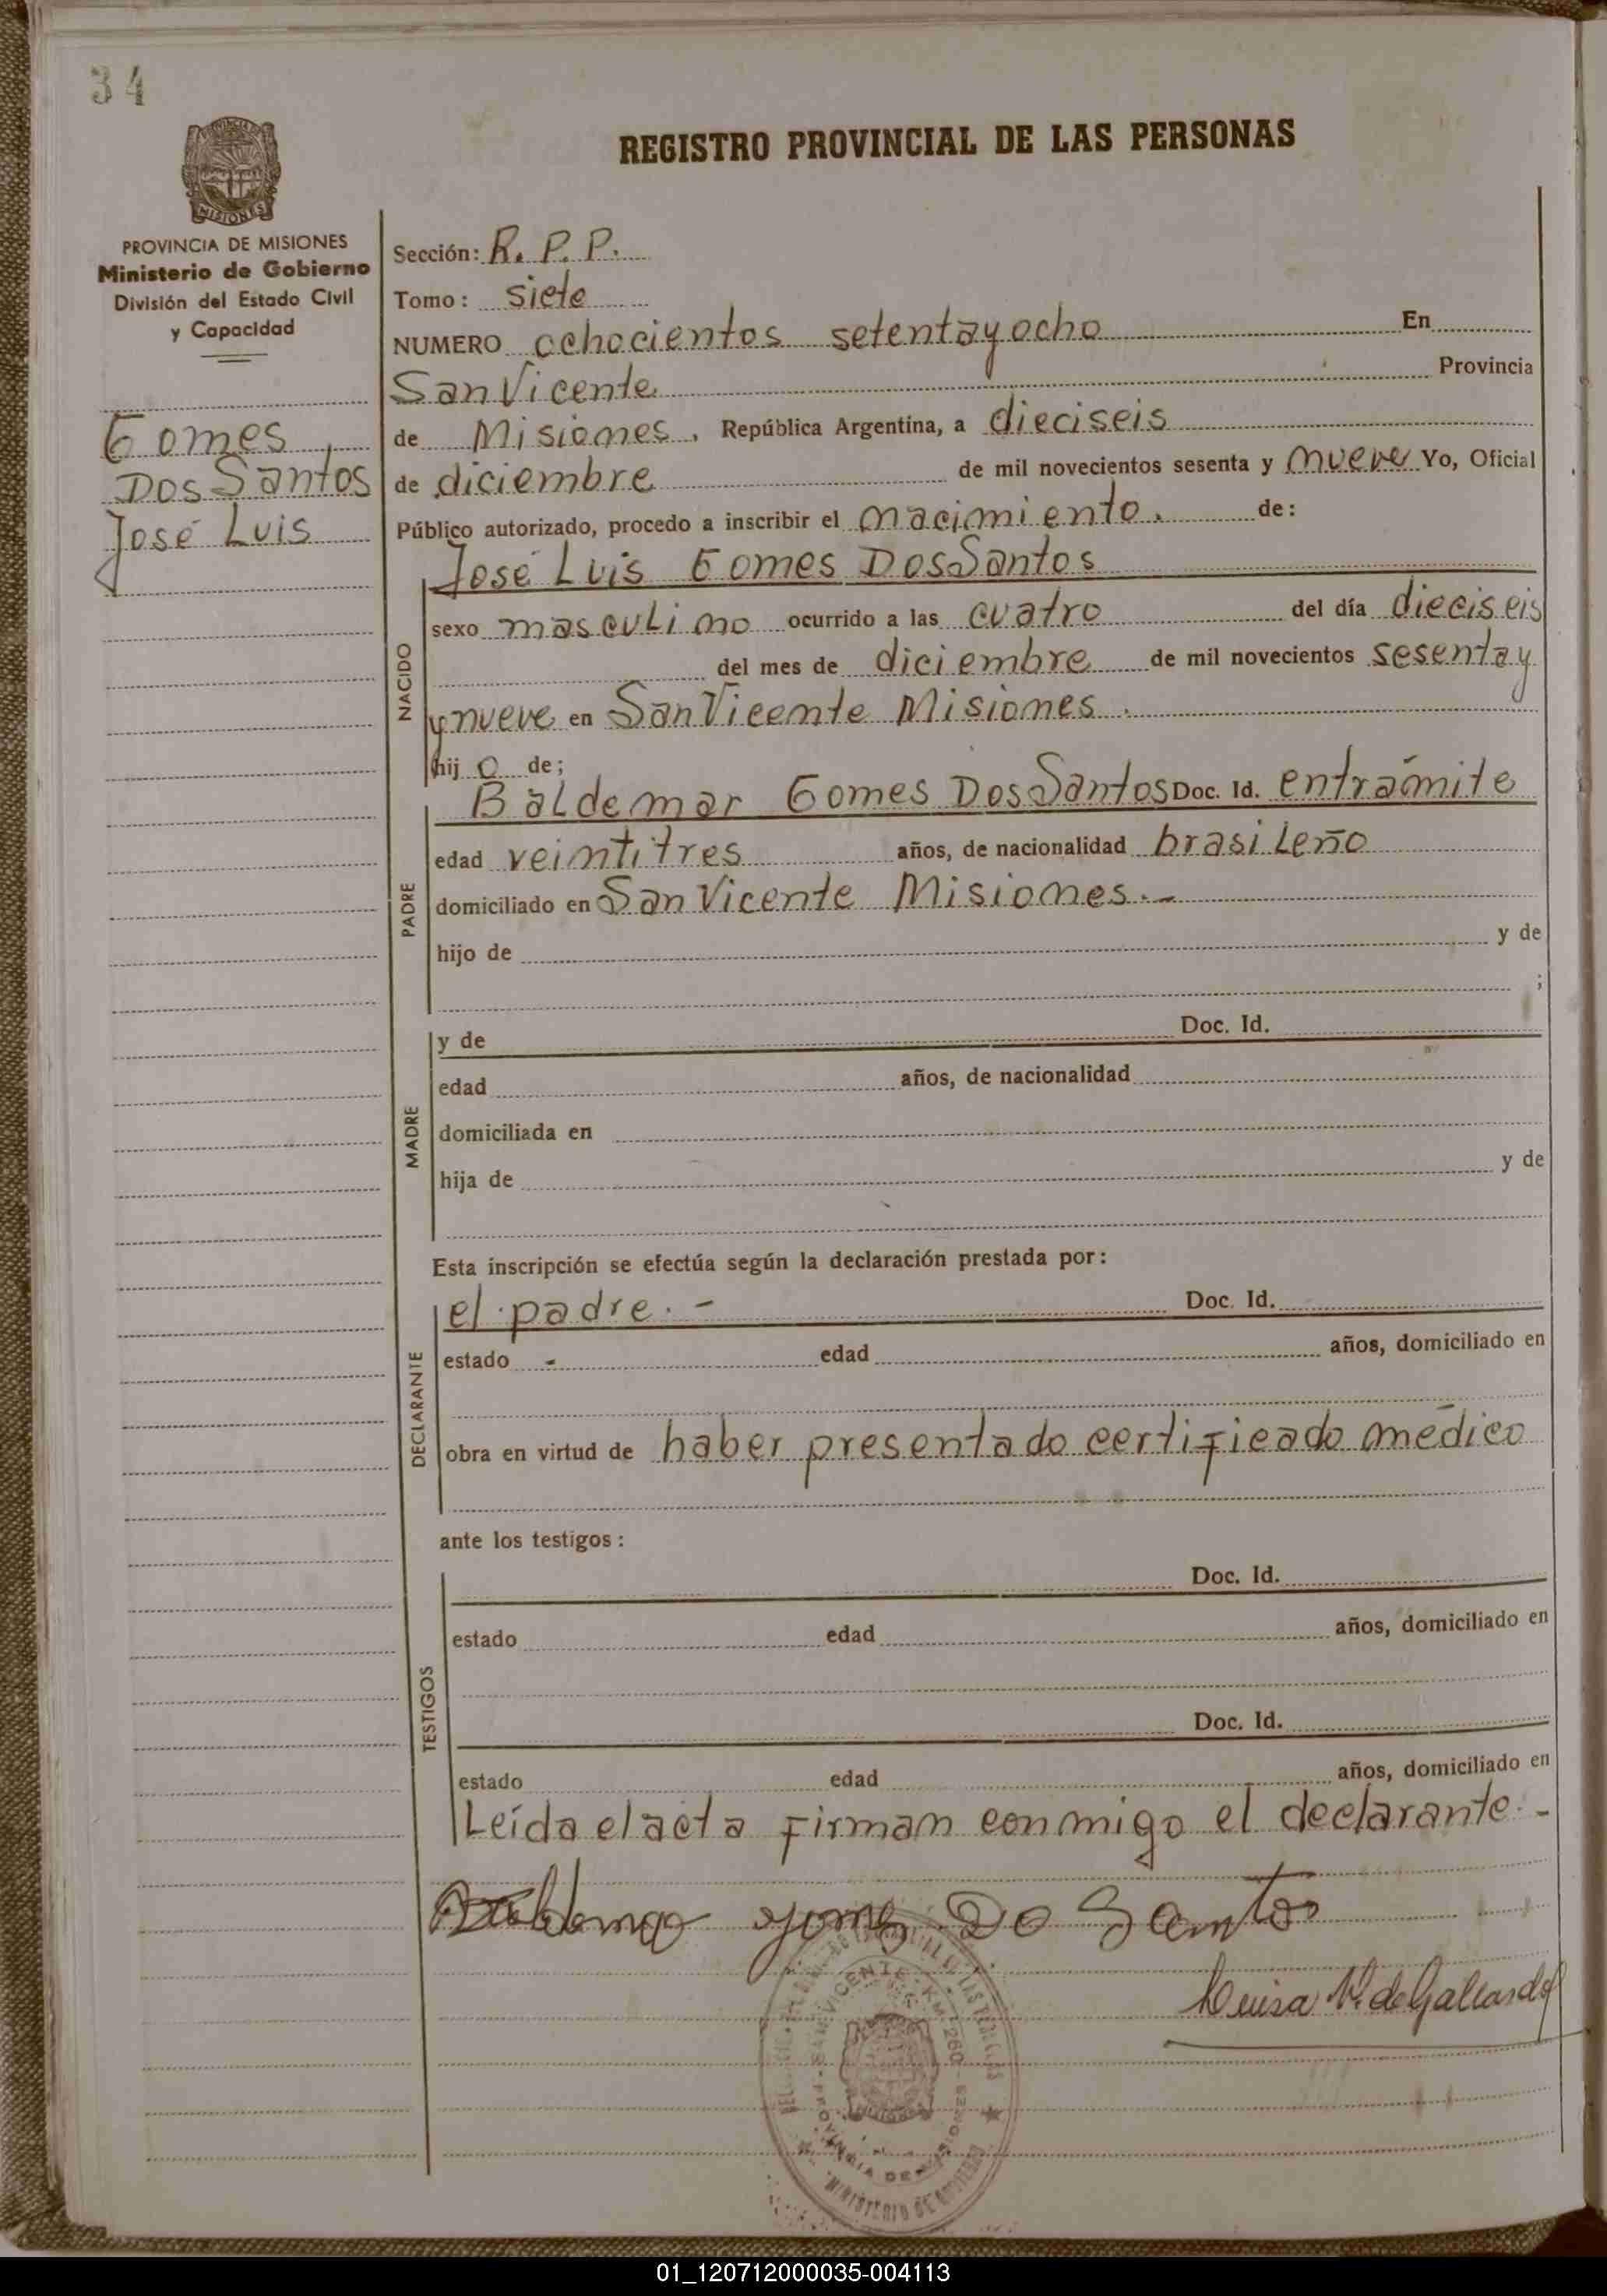 34
REGISTRO PROVINCIAL DE LAS PERSONAS
MISIONES
PROVINCIA DE MISIONES
Ministerio de Gobierno
División del Estado Civil
y Capacidad
Gomes
Dos Santos
José Luis
Sección: R. P. P.
Tomo: siete
NUMERO ochocientos setenta y ocho En
San Vicente Provincia
de Misiones, República Argentina, a dieciseis
de diciembre de mil novecientos sesenta y nueve Yo, Oficial
Público autorizado, procedo a inscribir el nacimiento. de:
NACIDO
José Luis Gomes Dos Santos
sexo masculino ocurrido a las cuatro del día dieciseis
del mes de diciembre de mil novecientos sesenta y
y nueve en San Vicente Misiones.
hij o de;
PADRE
Baldemar Gomes Dos Santos Doc. Id. en trámite
edad veintitres años, de nacionalidad brasileño
domiciliado en San Vicente Misiones.-
hijo de y de
;
MADRE
y de Doc. Id.
edad años, de nacionalidad
domiciliada en
hija de y de
Esta inscripción se efectúa según la declaración prestada por:
DECLARANTE
el padre.- Doc. Id.
estado - edad años, domiciliado en
obra en virtud de haber presentado certificado médico
ante los testigos:
TESTIGOS
Doc. Id.
estado edad años, domiciliado en
Doc. Id.
estado edad años, domiciliado en
Leída el acta firman conmigo el declarante.-
Do Santos
Luisa V. de Gallardo
SAN VICENTE - KM. 260
PROVINCIA DE MISIONES
MINISTERIO DE GOBIERNO
01_120712000035-004113